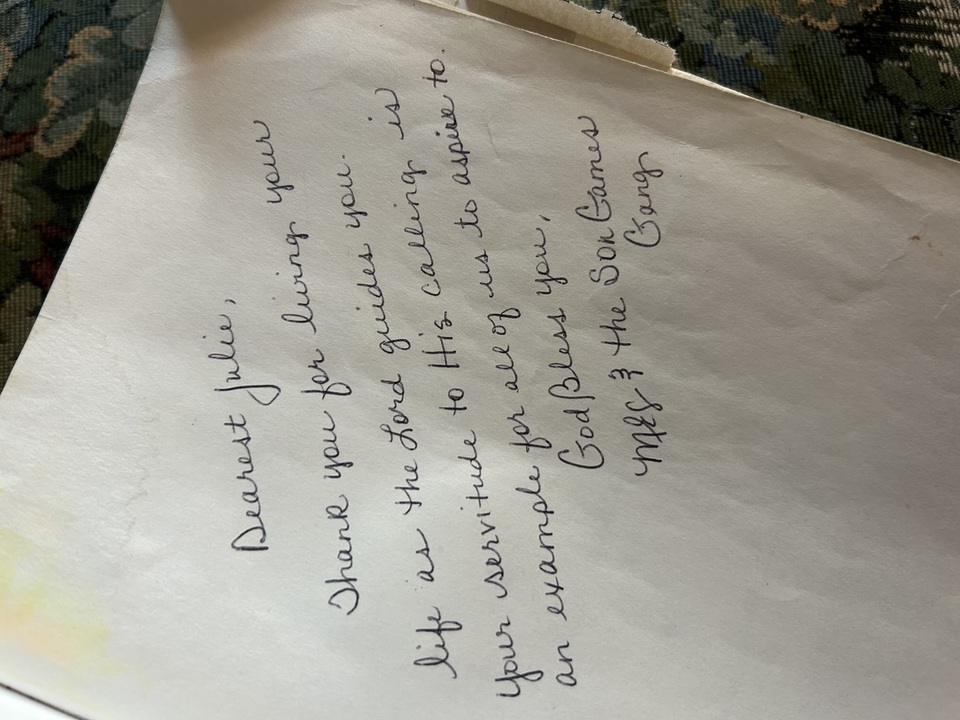 Dearest Julie,
Thank you for living your
life as the Lord guides you.
your servitude to His calling is
an example for all of us to aspire to.
God Bless you,
& the Son Games
Gang